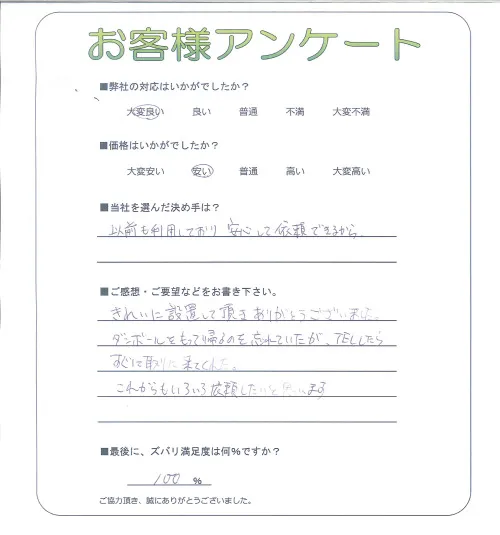 お客様アンケート
■弊社の対応はいかがでしたか？
大変良い 良い 普通 不満 大変不満
■価格はいかがでしたか？
大変安い 安い 普通 高い 大変高い
■当社を選んだ決め手は？
以前も利用しており 安心して依頼できるから
■ご感想・ご要望などをお書き下さい。
きれいに設置して頂きありがとうございました。
ダンボールをもって帰るのを忘れていたが、TELしたら
すぐに取りに来てくれた。
これからもいろいろ依頼したいと思います
■最後に、ズバリ満足度は何％ですか？
100 %
ご協力頂き、誠にありがとうございました。